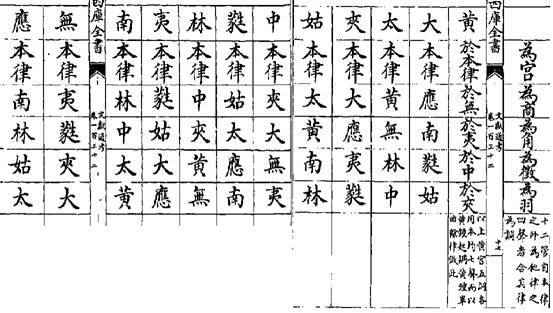 為宮為商為角為徵為羽
十二管自本律
之外為他律之
四聲者合其律
為調
四庫全書
文獻通考
卷一百三十二
十七
黃於本律於無於夷於中於夾
以上黃宮五調各
用本均七聲而以
黃鍾起調黃鍾畢
曲餘律倣此
大本律應南蕤姑
太本律黃無林中
夾本律大應夷蕤
姑本律太黃南林
中本律夾大無夷
蕤本律姑太應南
林本律中夾黃無
夷本律蕤姑大應
南本律林中太黃
四庫全書
文獻通考
卷一百三十二
無本律夷蕤夾大
應本律南林姑太